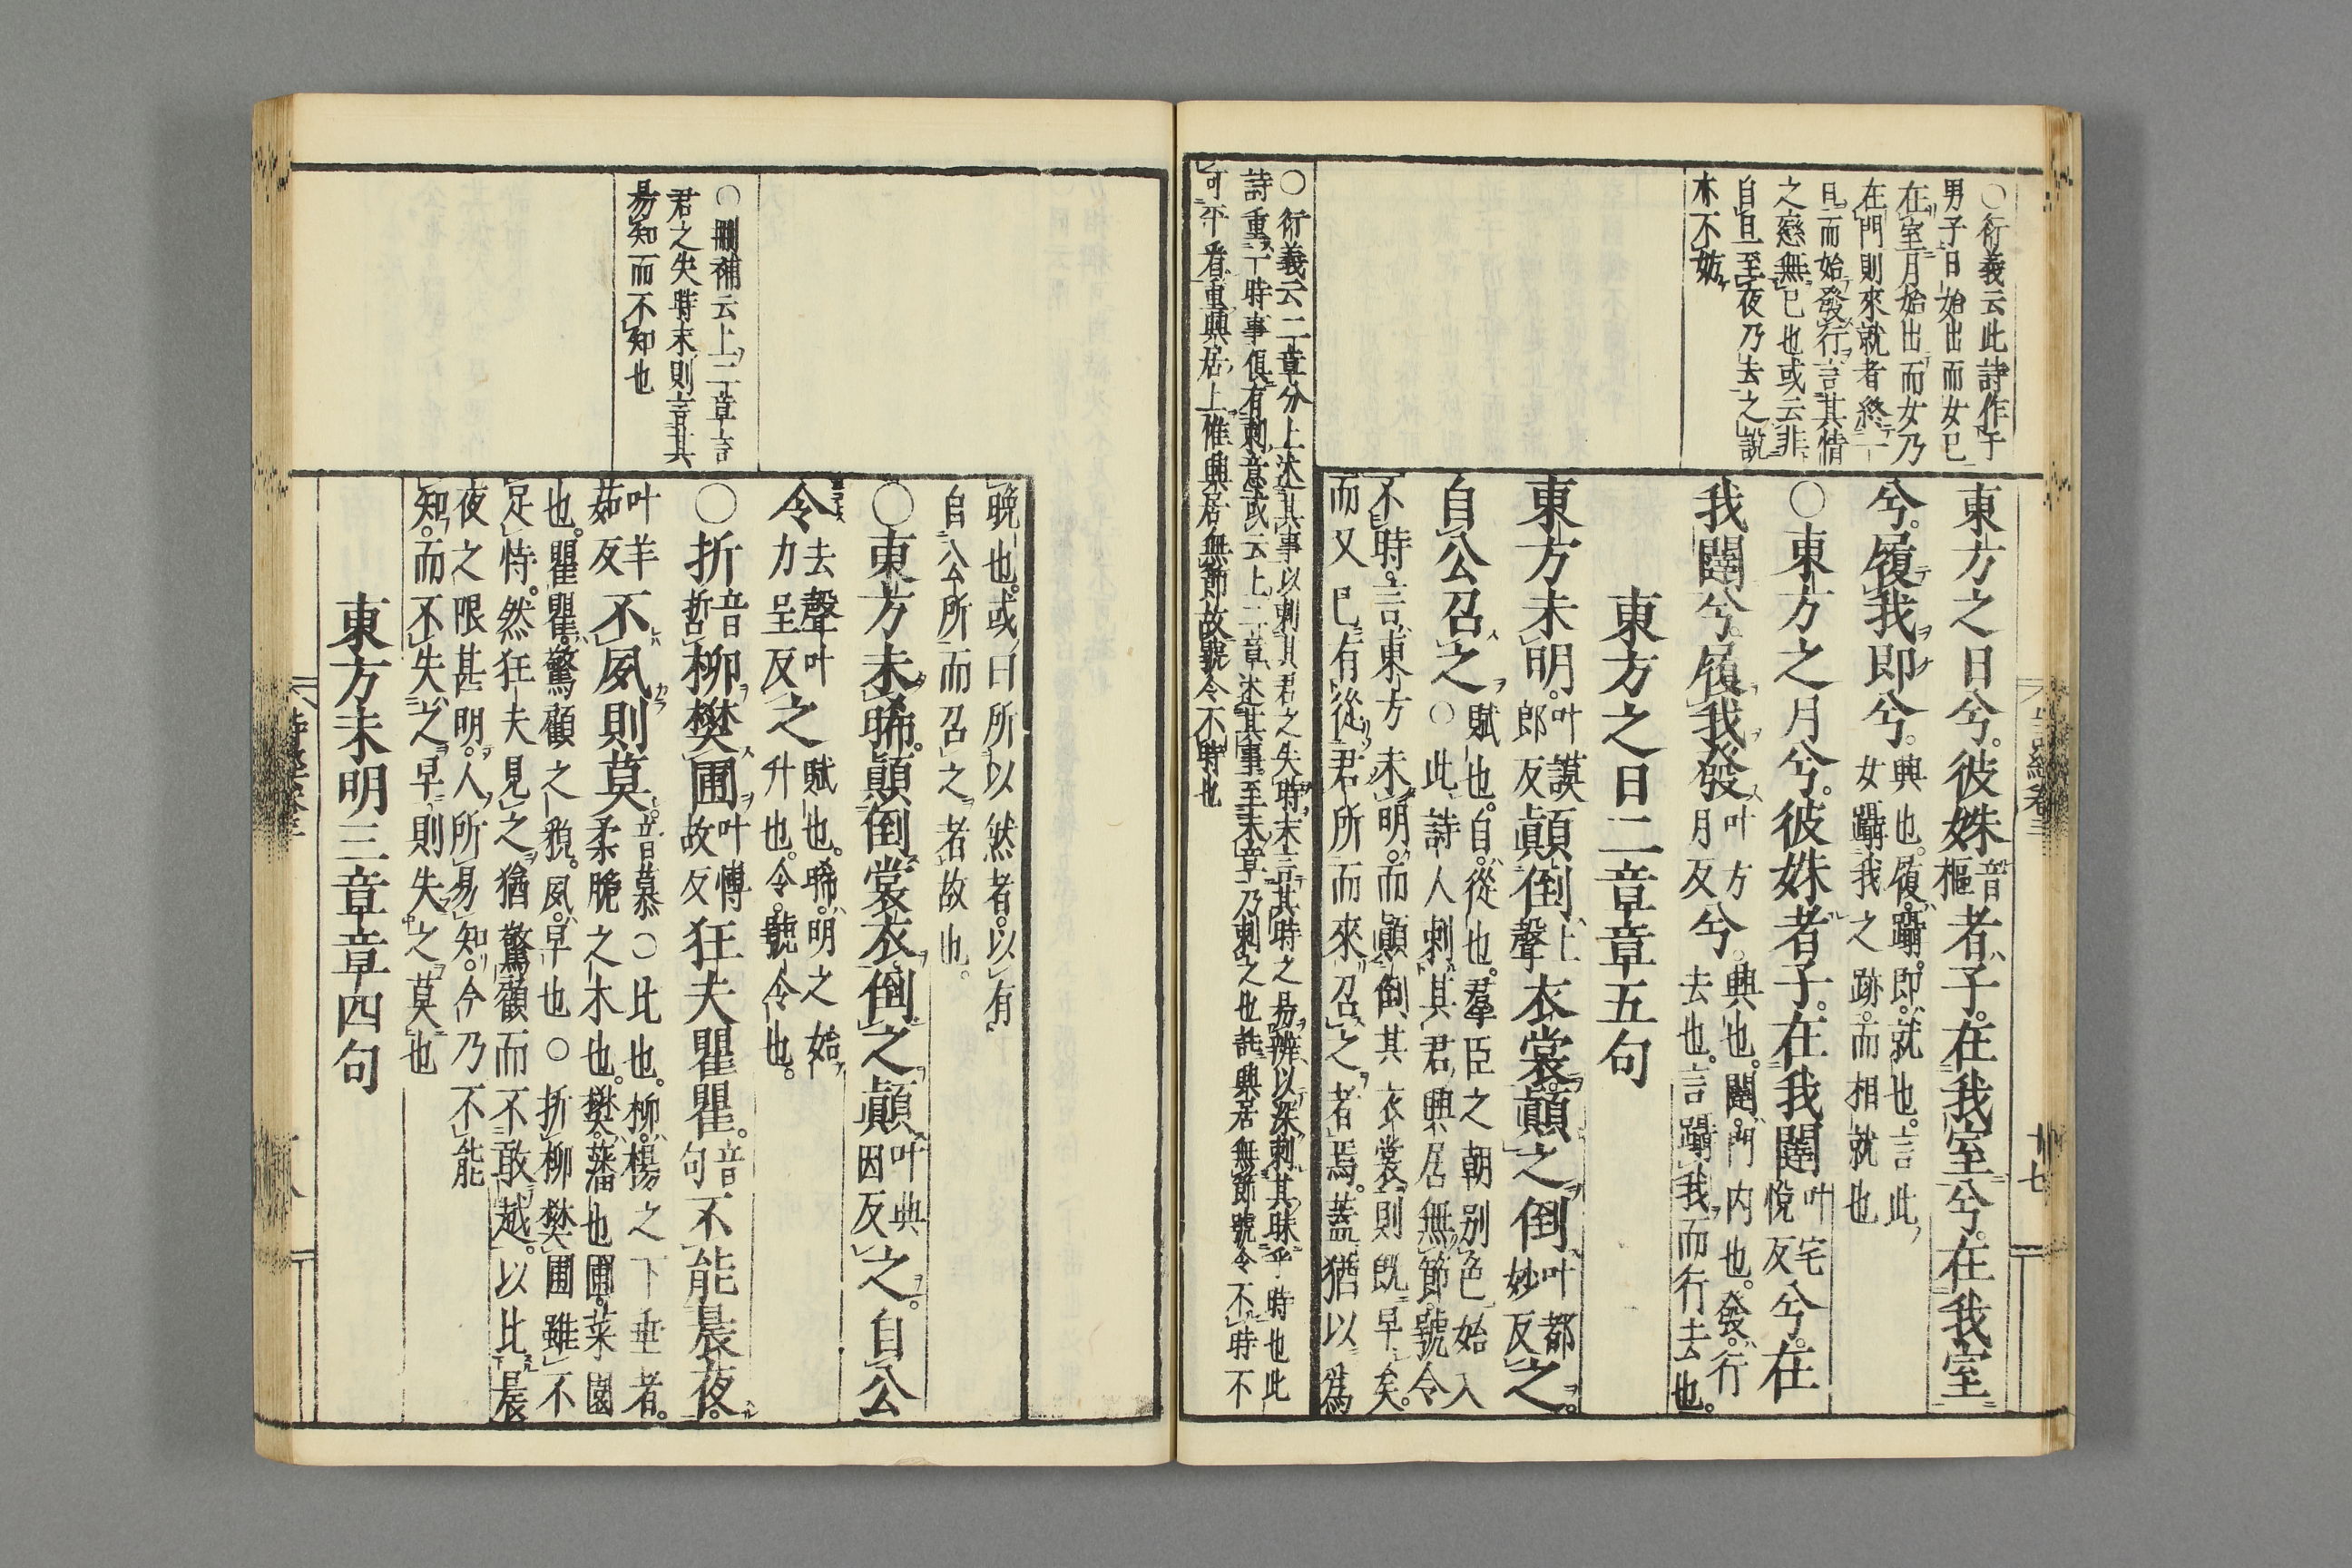 ○衍義云此詩作于
男子日始出而女已
在室月始出而女乃
在門則來就者終一
旦而始發行言其情
之戀無已也或云非
自旦至夜乃去之說
木不妨
東方之日兮。彼姝音樞者子。在我室兮。在我室
兮。履我即兮。興也。履。躡。即。就也。言此
女躡我之跡。而相就也
○東方之月兮。彼姝者子。在我闥叶宅悅反兮。在
我闥兮。履我發叶方月反兮。興也。闥。門内也。發。行
去也。言躡我而行去也。
東方之日二章章五句
東方未明。叶謨郎反顛倒上聲衣裳。顛之倒叶都妙反之。
自公召之。賦也。自。從也。羣臣之朝別色始入
○此詩人刺其君興居無節。號令
不時。言東方未明。而顛倒其衣裳。則既早矣。
而又已有從君所而來召之者焉。蓋猶以爲
○衍義云二章分上述其事以刺其君之失時末言其時之易辨以深刺其昧乎時也此
詩重一時事俱有刺意或云上二章述其事至末章乃刺之也詫興居無節號令不時不
可平看重興居上惟興居無節故號令不時也
○刪補云上二章言
君之失時末則言其
易知而不知也
晚也。或曰所以然者。以有
自公所而召之者故也。
○東方未晞。顛倒裳衣。倒之顛叶典因反之。自公
令去聲叶力呈反之賦也。晞。明之始
升也。令。號令也。
○折音哲柳樊圃叶博故反狂夫瞿瞿。音句不能晨夜。
叶羊茹反不夙則莫。音慕○比也。柳。楊之下垂者。
柔脆之木也。樊。藩也圃。菜園
也。瞿瞿。驚顧之貌。夙。早也○折柳樊圃雖不
足恃。然狂夫見之猶驚顧而不敢越。以比晨
夜之限甚明。人所易知。今乃不能
知。而不失之早。則失之莫也
東方未明三章章四句